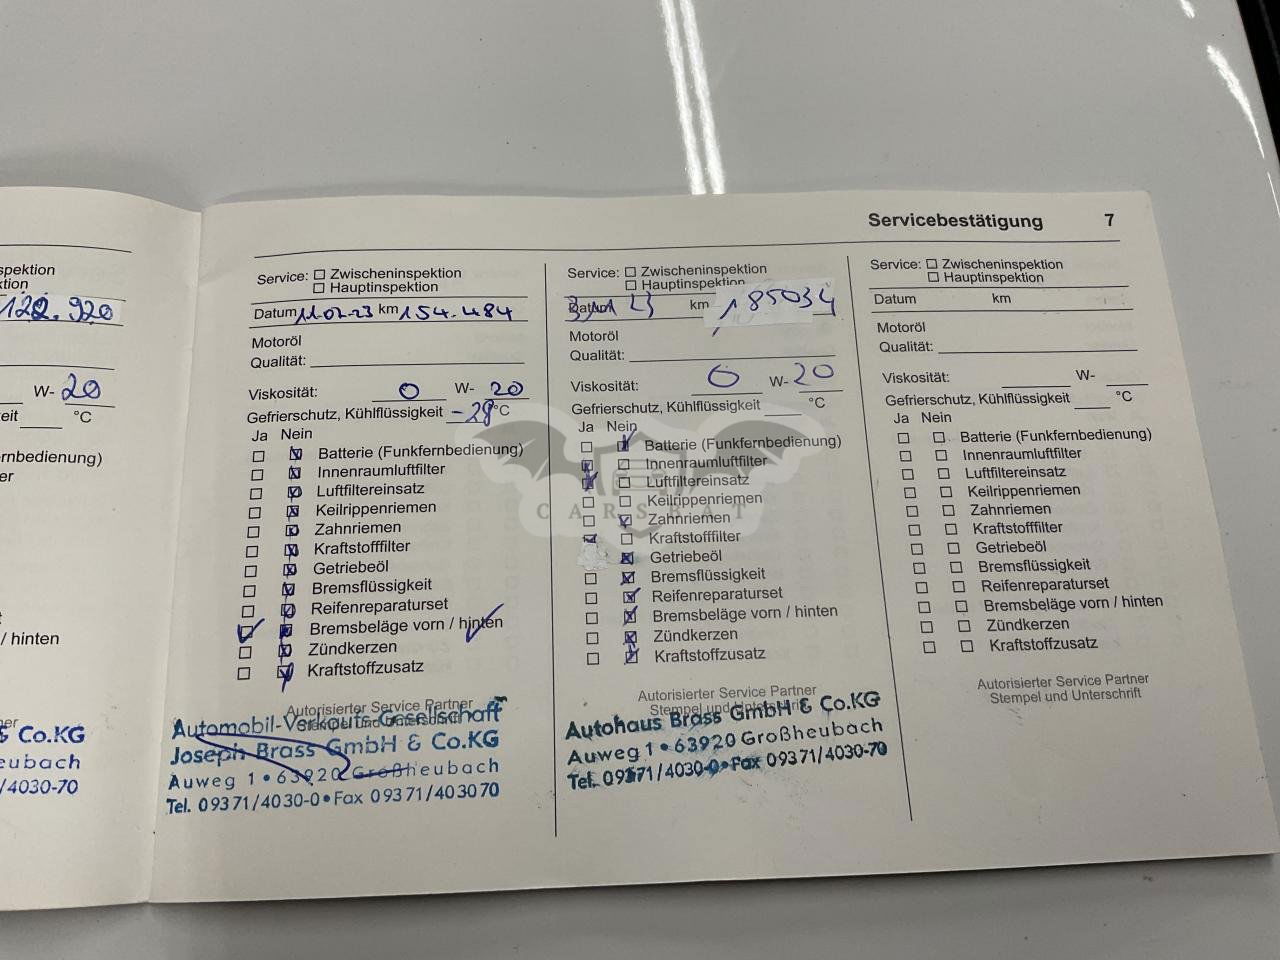 Servicebestätigung 7
spektion
ktion
122.920
W- 20
eit °C
rnbedienung)
er
/ hinten
ner
& Co.KG
eubach
/4030-70
Service: Zwischeninspektion
Hauptinspektion
Datum 11.07.23 km 154.484
Motoröl
Qualität:
Viskosität: 0 W- 20
Gefrierschutz, Kühlflüssigkeit -28 °C
Ja Nein
Batterie (Funkfernbedienung)
Innenraumluftfilter
Luftfiltereinsatz
Keilrippenriemen
Zahnriemen
Kraftstofffilter
Getriebeöl
Bremsflüssigkeit
Reifenreparaturset
Bremsbeläge vorn / hinten
Zündkerzen
Kraftstoffzusatz
Autorisierter Service Partner
Stempel und Unterschrift
Automobil-Verkaufs-Gesellschaft
Joseph Brass GmbH & Co.KG
Auweg 1 • 63920 Großheubach
Tel. 09371/4030-0 • Fax 09371/403070
Service: Zwischeninspektion
Hauptinspektion
Datum km 185034
Motoröl
Qualität:
Viskosität: 0 W- 20
Gefrierschutz, Kühlflüssigkeit °C
Ja Nein
Batterie (Funkfernbedienung)
Innenraumluftfilter
Luftfiltereinsatz
Keilrippenriemen
Zahnriemen
Kraftstofffilter
Getriebeöl
Bremsflüssigkeit
Reifenreparaturset
Bremsbeläge vorn / hinten
Zündkerzen
Kraftstoffzusatz
Autorisierter Service Partner
Stempel und Unterschrift
Autohaus Brass GmbH & Co.KG
Auweg 1 • 63920 Großheubach
Tel. 09371/4030-0 • Fax 09371/4030-70
Service: Zwischeninspektion
Hauptinspektion
Datum km
Motoröl
Qualität:
Viskosität: W-
Gefrierschutz, Kühlflüssigkeit °C
Ja Nein
Batterie (Funkfernbedienung)
Innenraumluftfilter
Luftfiltereinsatz
Keilrippenriemen
Zahnriemen
Kraftstofffilter
Getriebeöl
Bremsflüssigkeit
Reifenreparaturset
Bremsbeläge vorn / hinten
Zündkerzen
Kraftstoffzusatz
Autorisierter Service Partner
Stempel und Unterschrift
CARSBAT